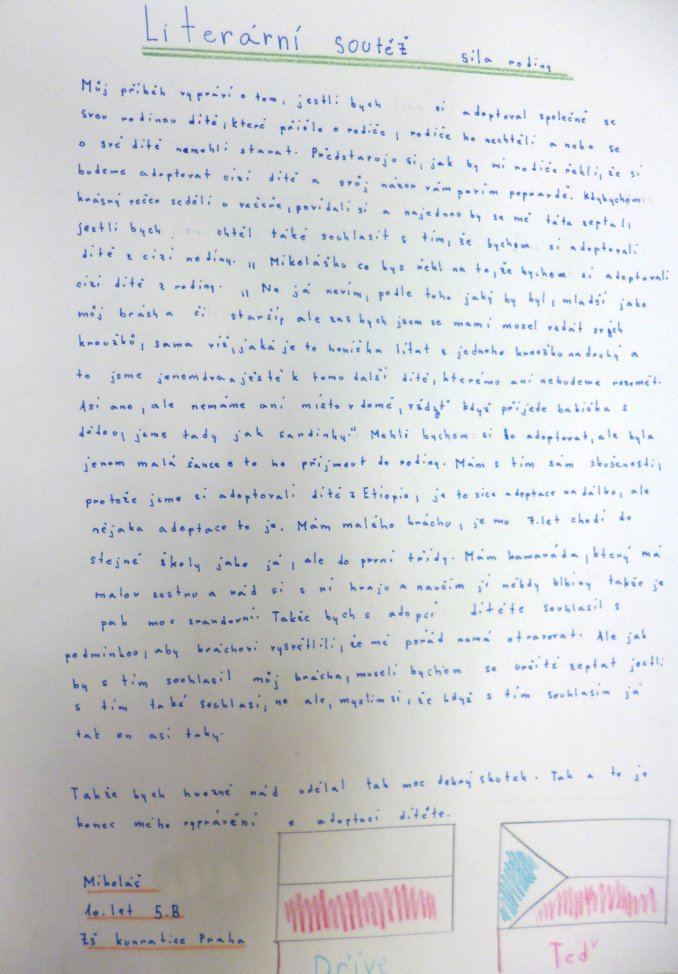 Literární soutěž síla rodiny
Můj příběh vypráví o tom, jestli bych si adoptoval společně se
svou rodinou dítě, které přišlo o rodiče, rodiče ho nechtěli a nebo se
o své dítě nemohli starat. Představuju si, jak by mi rodiče řekli, že si
budeme adoptovat cizí dítě a svůj názor vám povím popravdě. Kdybychom
krásný večer seděli u večeře, povídali si a najednou by se mě táta zeptal,
jestli bych chtěl také souhlasit s tím, že bychom si adoptovali
dítě z cizí rodiny. „ Mikolášku co bys řekl na to, že bychom si adoptovali
cizí dítě z rodiny. „ No já nevím, podle toho jaký by byl, mladší jako
můj brácha či starší, ale zas bych jsem se mami musel vzdát svých
kroužků, sama víš, jaká je to honička lítat z jednoho kroužku na druhý a
to jsme jenom dva a ještě k tomu další dítě, kterému ani nebudeme rozumět.
Asi ano, ale nemáme ani místo v domě, vždyť když přijede babička s
dědou, jsme tady jak sardinky“. Mohli bychom si ho adoptovat, ale byla
jenom malá šance o to ho příjmout do rodiny. Mám s tím sám skušenosti,
protože jsme si adoptovali dítě z Etiopie, je to sice adoptace na dálku, ale
nějaka adoptace to je. Mám malého bráchu, je mu 7.let chodí do
stejné školy jako já, ale do první třídy. Mám kamaráda, který má
malou sestru a rád si s ní hraju a naučím jí někdy blbiny takže je
pak moc srandovní. Takže bych s adopcí dítěte souhlasil s
podmínkou, aby bráchovi vysvětlili, že mě pořád nemá otravovat. Ale jak
by s tím souhlasil můj brácha, museli bychom se určitě zeptat jestli
s tím také souhlasí, no ale, myslim si, že když s tím souhlasím já
tak on asi taky.
Takže bych hrozně rád udělal tak moc dobrý skutek. Tak a to je
konec mého vyprávění o adoptaci dítěte.
Mikoláš
10.let 5.B
Zš kunratice Praha
Dříve
Teď